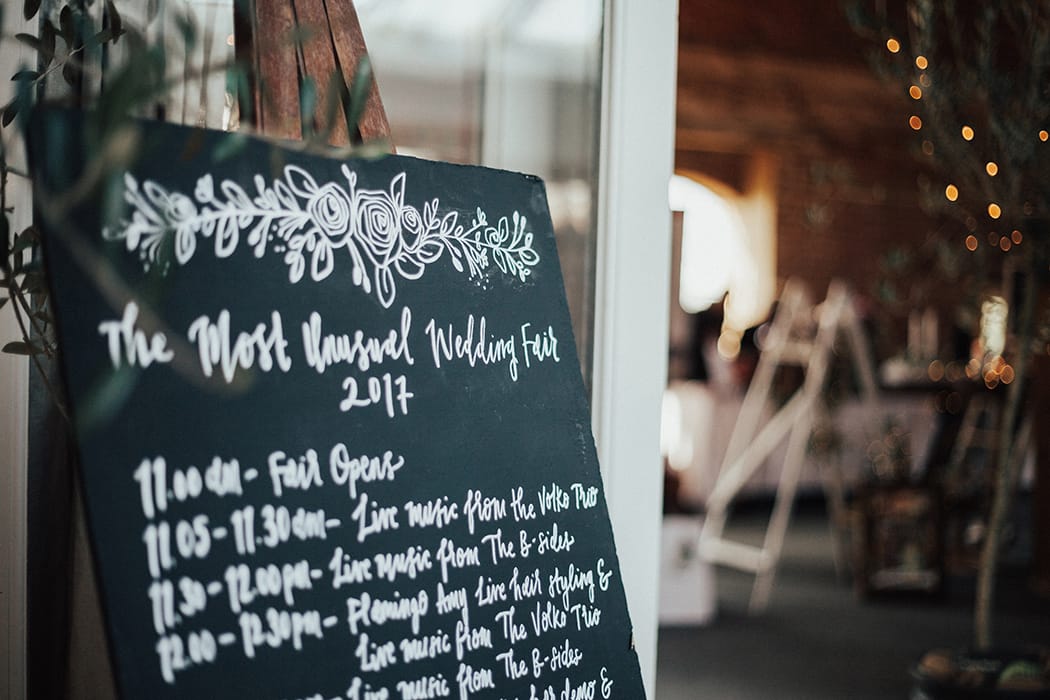 The Most Unusual Wedding Fair
2017
11.00am - Fair Opens
11.05 - 11.30am - Live music from the Volko Trio
11.30 - 12.00pm - Live music from The B-sides
12.00 - 12.30pm - Flamingo Amy Live hair styling &
Live music from The Volko Trio
Live music from The B-sides
demo &